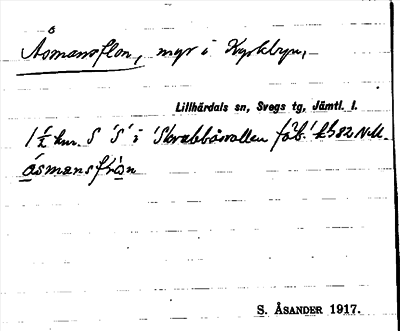 Åsmansflon, myr i Kyrkbyn,
Lillhärdals sn, Svegs tg, Jämtl. l.
1 ½ km. S 'S' i 'Skrabbåsvallen fäb.' kb 82 N.M.
åsmansfrȯn
S. ÅSANDER 1917.